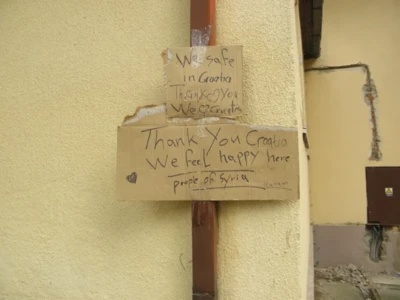 We safe
in Croatia
Thanke You
We ♡ Croatia
Thank You Croatia
We feel happy here
people of Syria